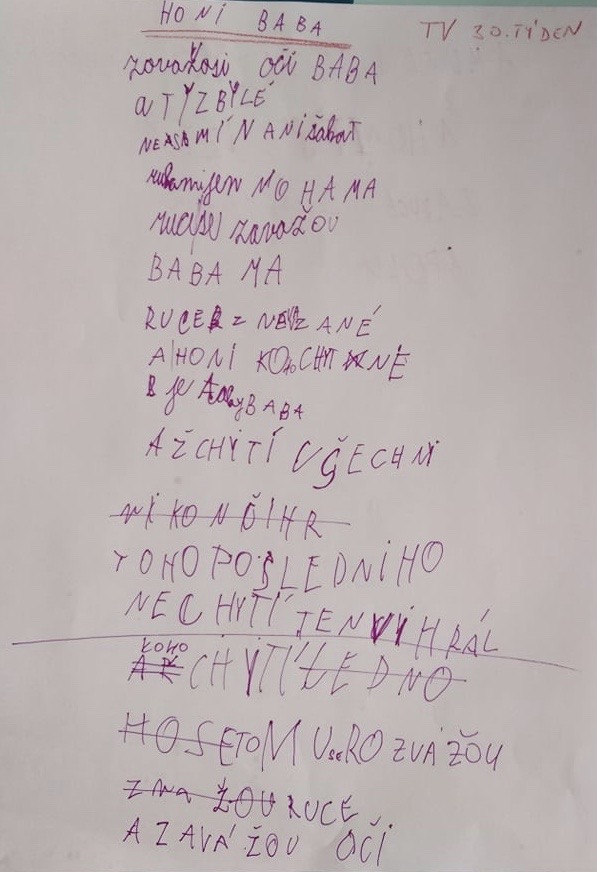 HONI BABA
TV 30. TÝDEN
zovažosi očí BABA
a TÝ ZBÝLÉ
MÍ NANI šábat
NOHAMA
ruce zavažou
BABA MA
RUCE Z ZANÉ
A HONI KOHO CHYTNE
je BABA
AŽ CHYTÍ VŠECHNI
NI KONČI HR
TOHO POSLEDNÍHO
NECHYTÍ TEN VIHRÁL
KOHO
AK CHYTÍ LEDNO
HOSE TOMU se ROZVÁŽOU
ŽOU RUCE
A ZAVÁŽOU OČÍ